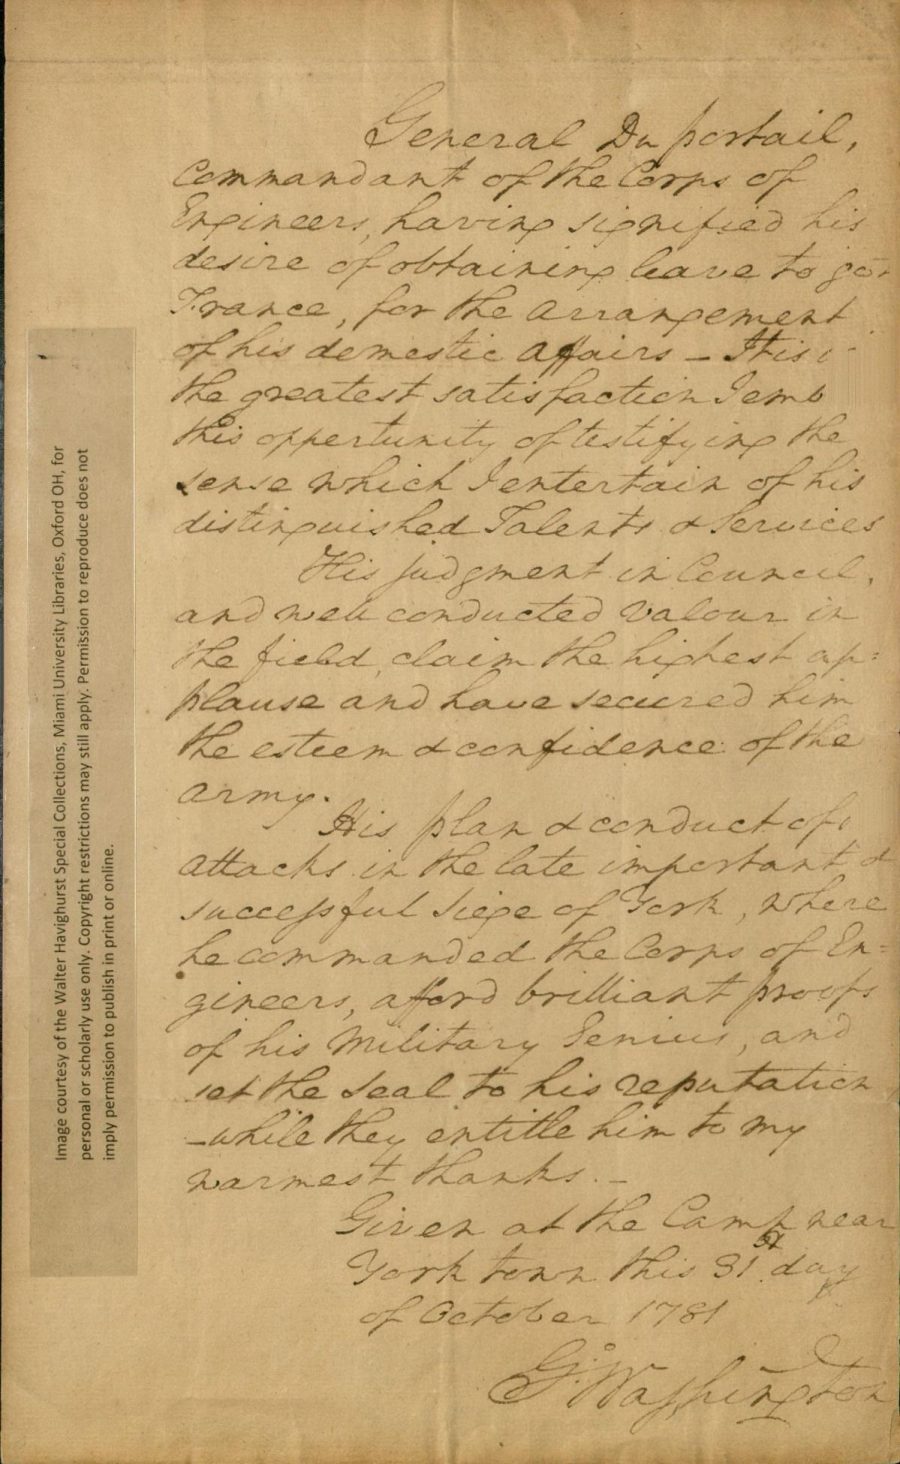 General Du portail,
Commandant of the Corps of
Engineers, having signified his
desire of obtaining leave to go
France, for the arrangement
of his domestic affairs – It is
the greatest satisfaction I emb
this opportunity of testifying the
sense which I entertain of his
distinguished Talents & Services
His judgment in Council,
and well conducted Valour in
the field, claim the highest ap=
plause and have secured him
the esteem & confidence of the
Army.
His plan & conduct of
attacks in the late important &
successful Siege of York, where
he commanded the Corps of En=
gineers, afford brilliant proofs
of his Military Genius, and
set the Seal to his reputation
– while they entitle him to my
warmest thanks. –
Given at the Camp near
York town this 31st day
of October 1781
G:o Washington
Image courtesy of the Walter Havighurst Special Collections, Miami University Libraries, Oxford OH, for
personal or scholarly use only. Copyright restrictions may still apply. Permission to reproduce does not
imply permission to publish in print or online.